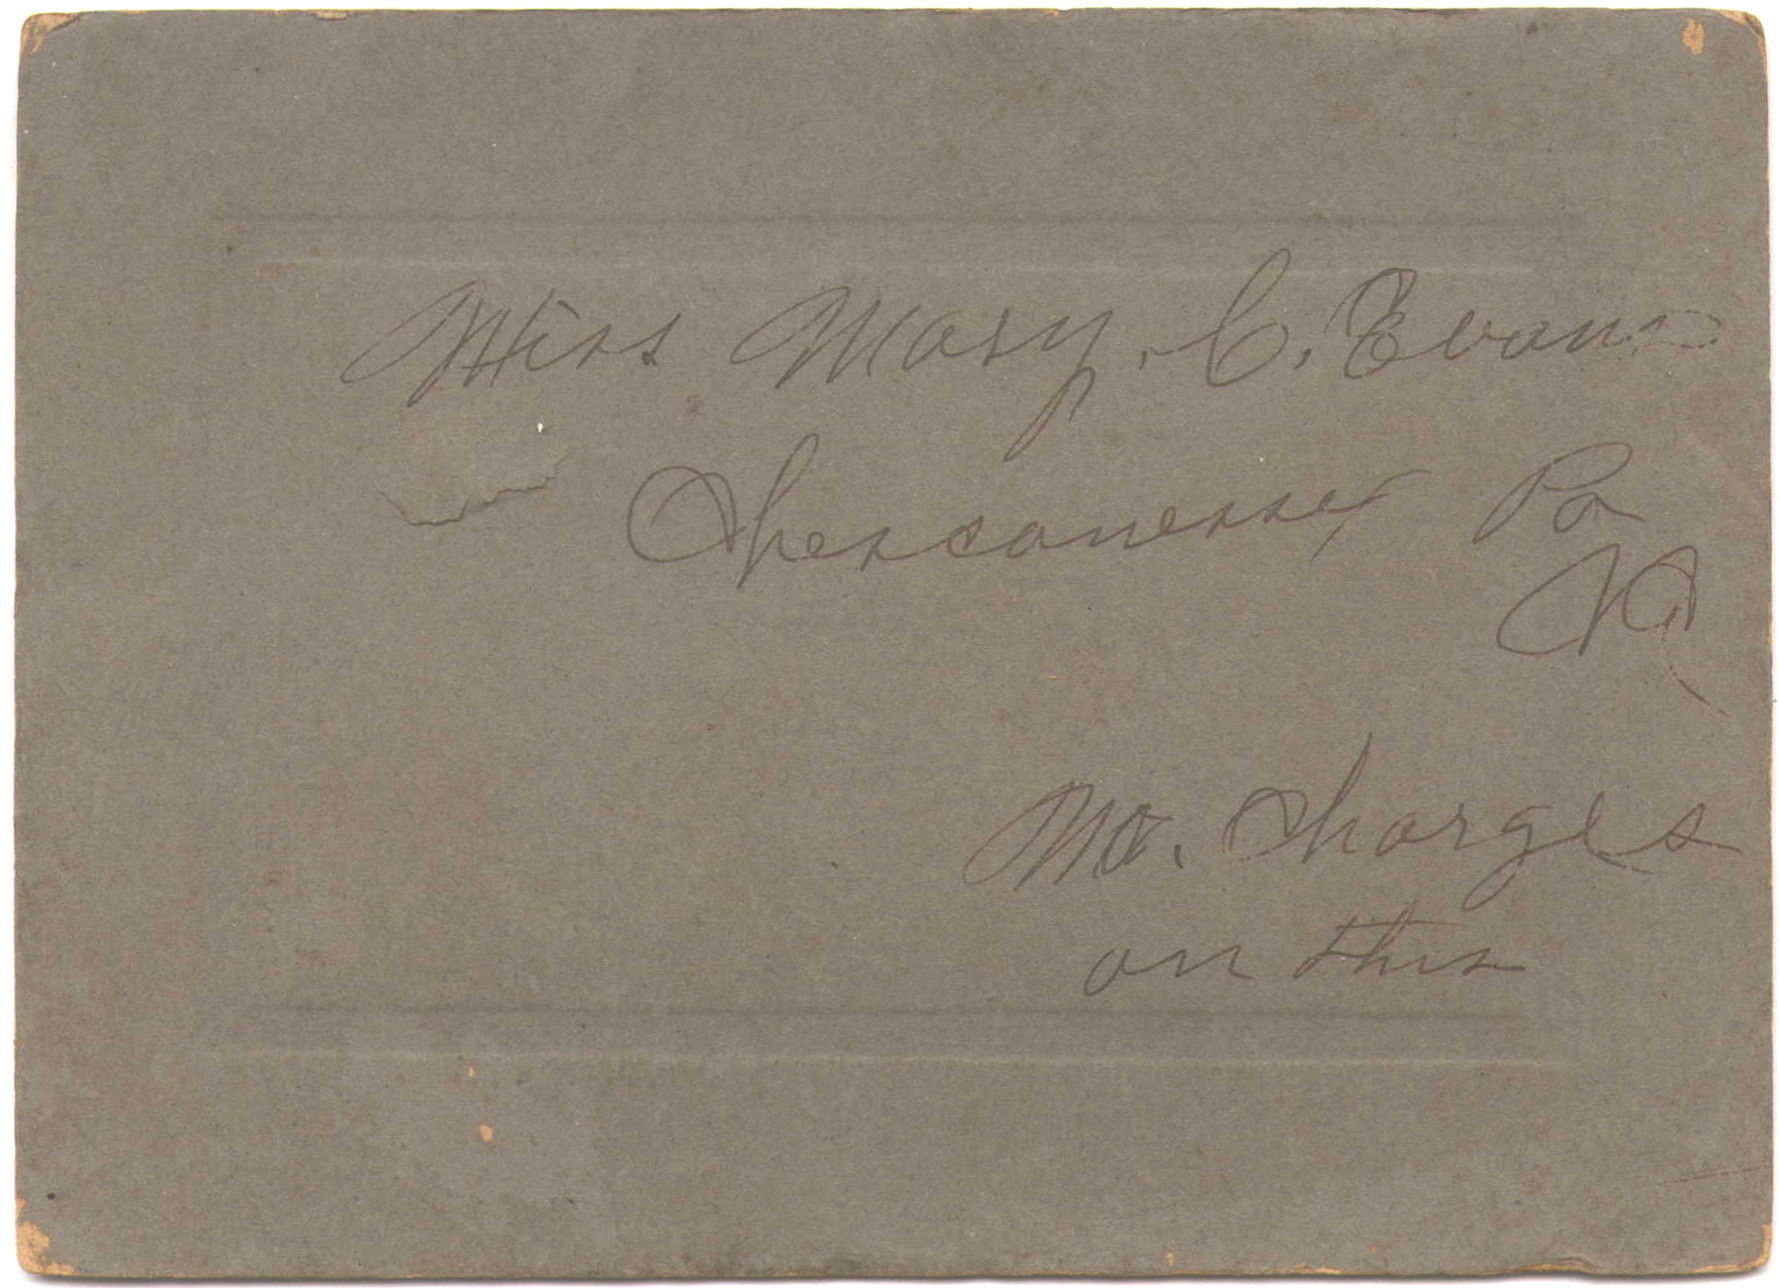 Miss Mary. C. Evans
Chesconessex Po
Va
No. Charges
on this